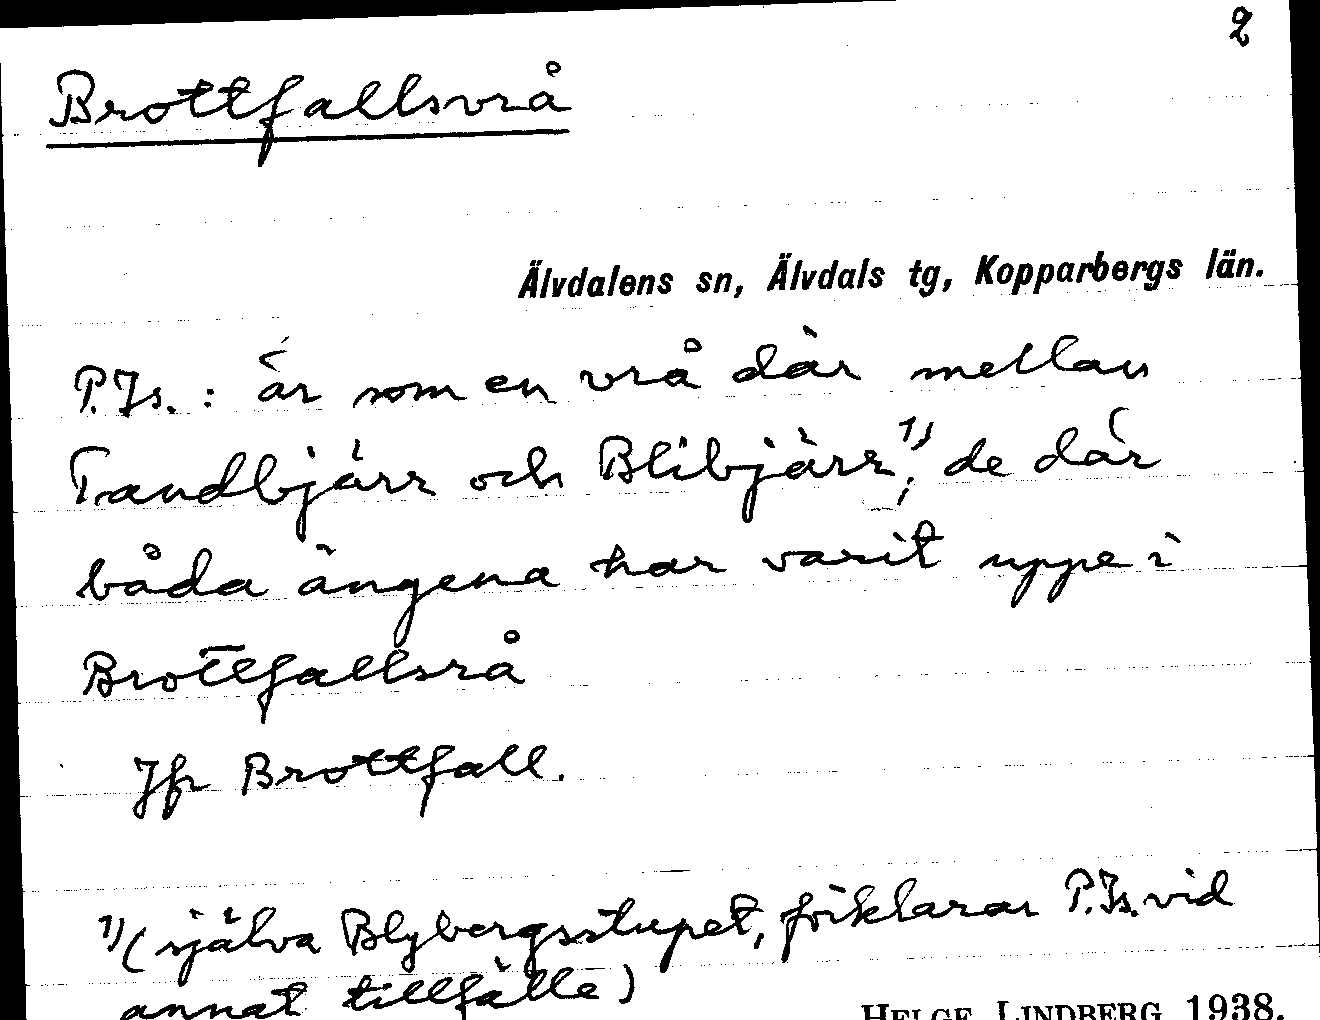 2
Brottfallsvrå
Älvdalens sn, Älvdals tg, Kopparbergs län.
P.Js. : är som en vrå där mellan
Tandbjärr och Blibjärr¹⁾; de där
båda ängena har varit uppe i
Brottfallsrå
Jfr Brottfall.
1) (själva Blybergsstupet, förklarar P.Js. vid
annat tillfälle)
HELGE LINDBERG 1938.